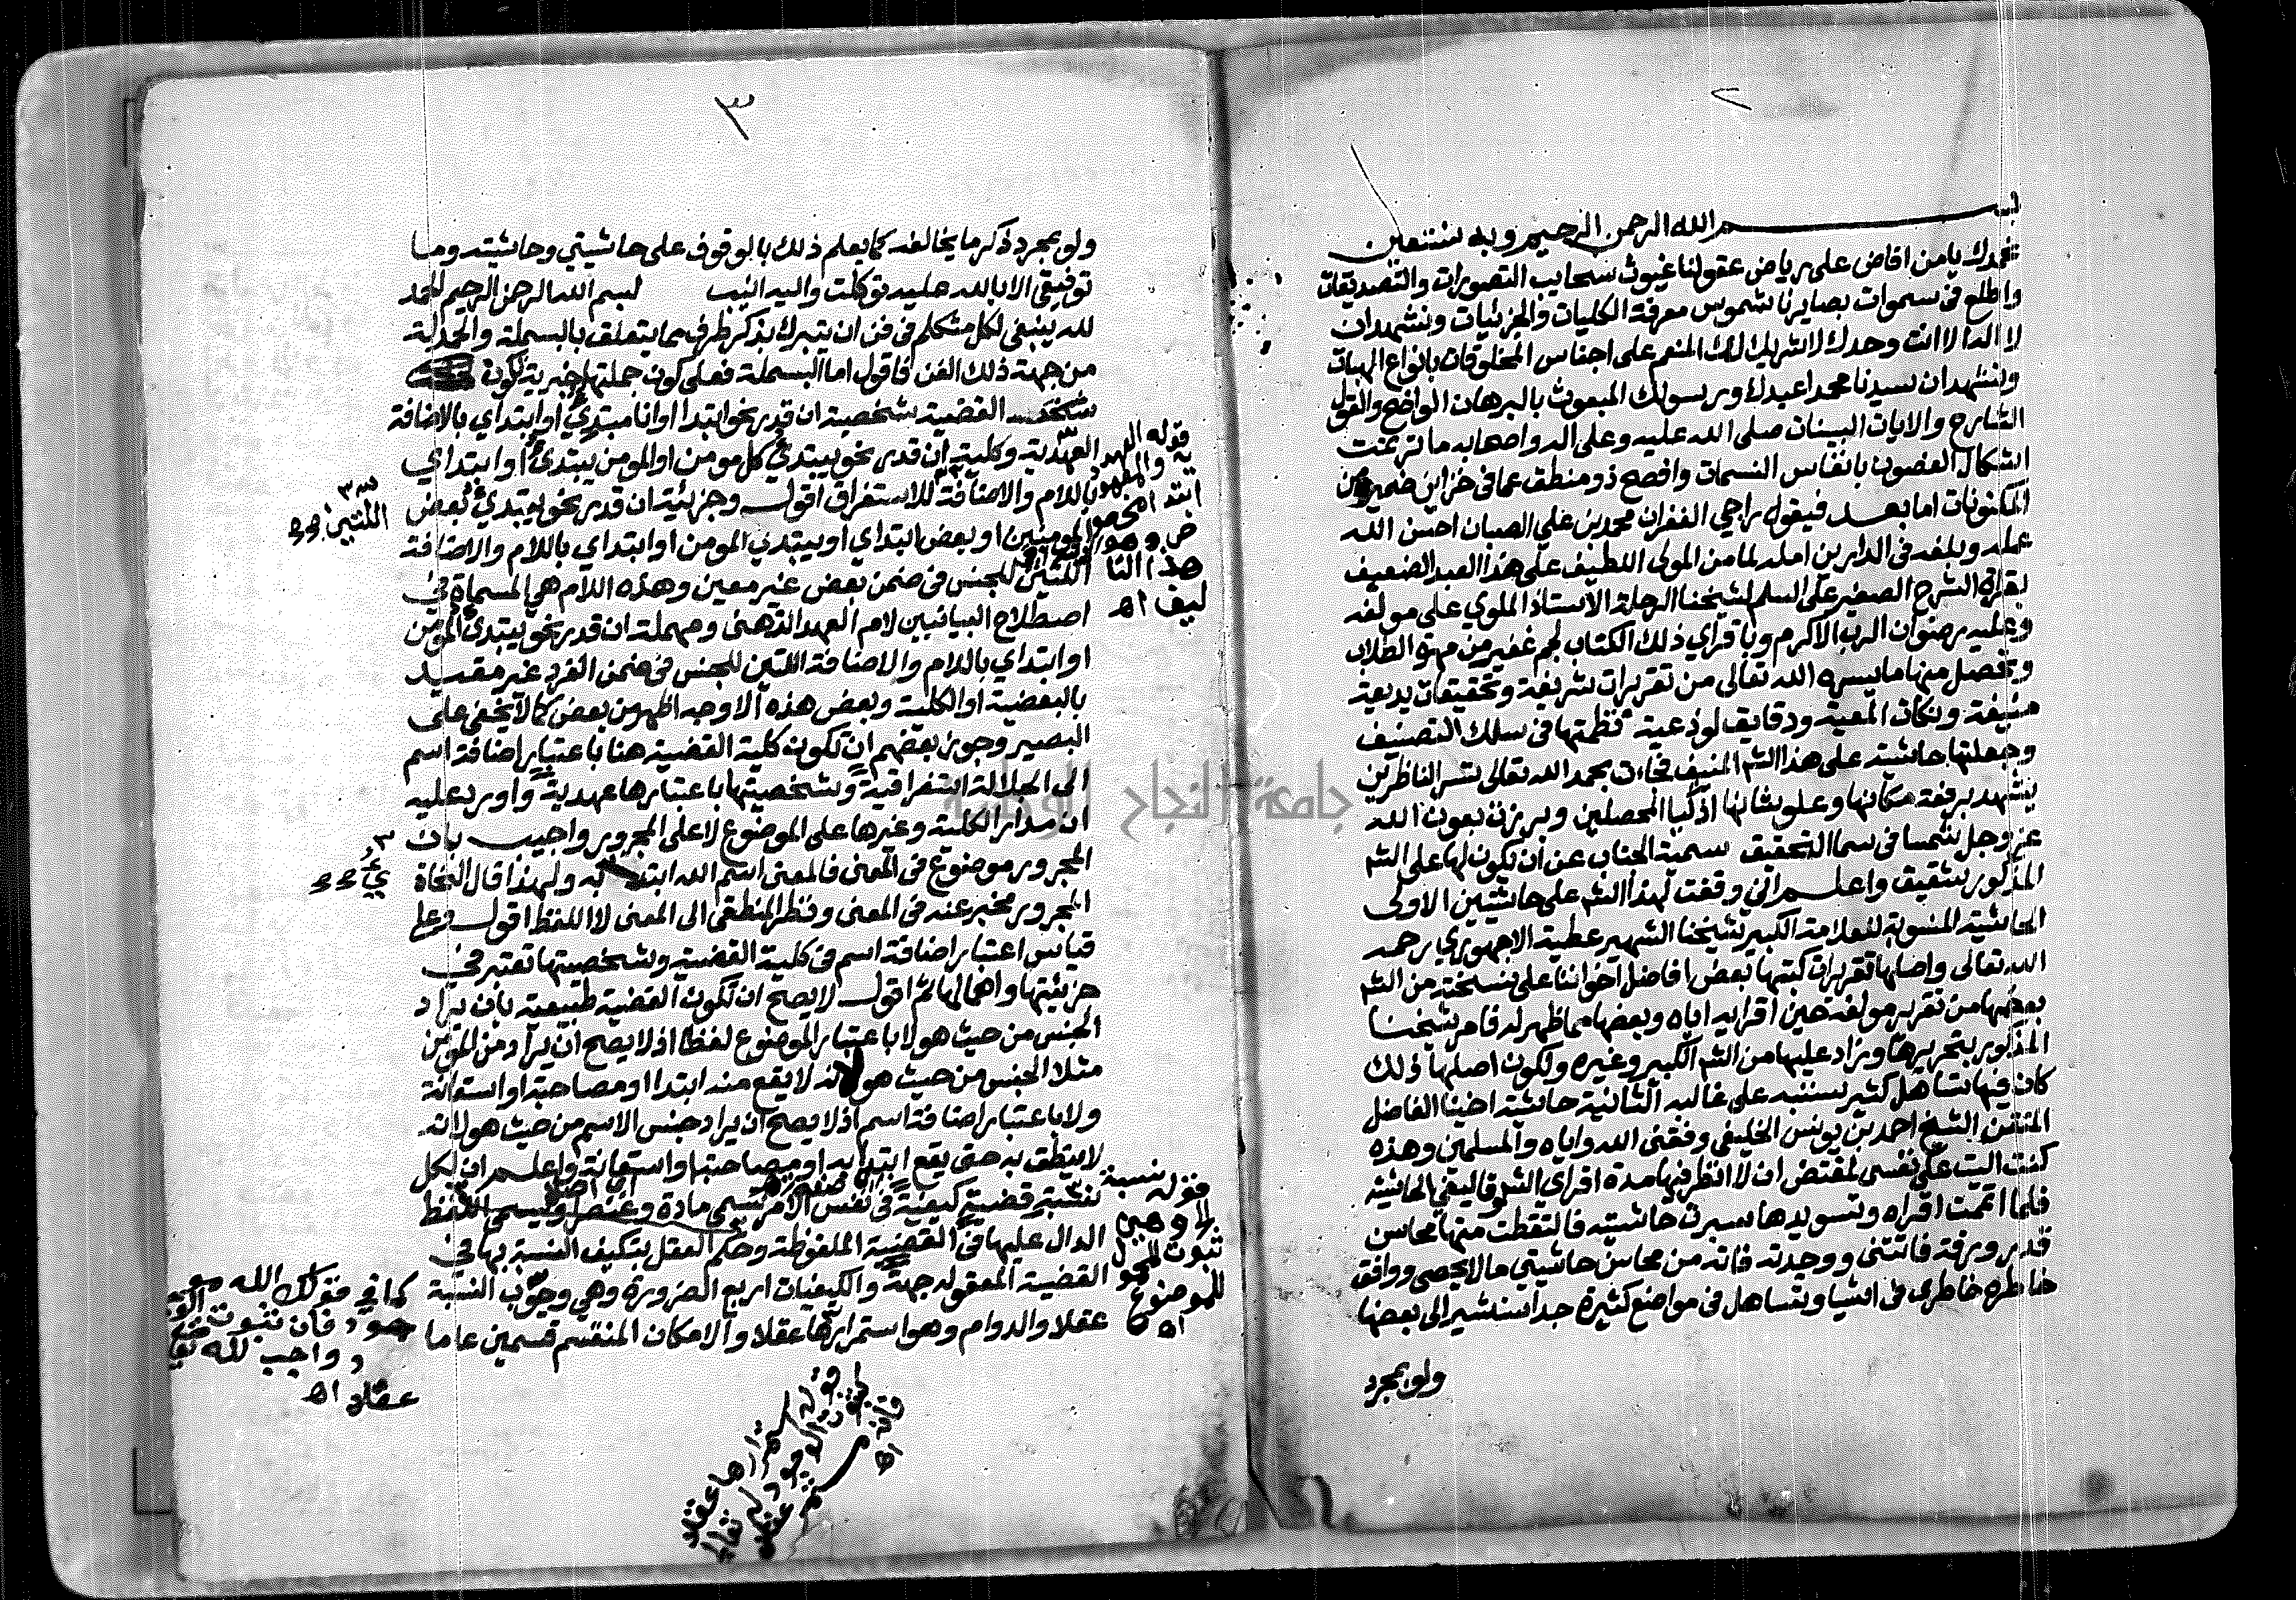 ٢
بسم الله الرحمن الرحيم وبه نستعين
نحمدك يا من افاض على رياض عقولنا غيوث سحايب التصورات والتصديقات
واطلع في سموات بصايرنا شموس معرفة الكليات والجزئيات ونشهد ان
لا اله الا انت وحدك لا شريك لك المنعم على اجناس المخلوقات بانواع الهبات
ونشهد ان سيدنا محمدا عبدك ورسولك المبعوث بالبرهان الواضح والقول
الشارح والايات البينات صلى الله عليه وعلى اله واصحابه ما ترنمت
اشكال الغصون بانفاس النسمات وافصح ذو منطق عما في خزاين ضميره من
المكنونات اما بعد فيقول راجي الغفران محمد بن علي الصبان احسن الله
عمله وبلغه في الدارين امله لما من المولى اللطيف على هذا العبد الضعيف
بقراة الشرح الصغير على السلم لشيخنا الرحلة الاستاذ الملوي على مولفه
وعليه رضوان الرب الاكرم وباقراي ذلك الكتاب لجم غفير من مهرة الطلاب
وتحصل منها ما يسره الله تعالى من تقريرات شريفة وتحقيقات بديعة
منيفة ونكات المعية ودقايق لوذعية نظمتها في سلك التصنيف
وجعلتها حاشية على هذا الشم المنيف فجاءت بحمد الله تعالى تسر الناظرين
يشهد برفعة مكانها وعلو شانها اذكيا المحصلين وبرزت بعون الله
عز وجل شمسا في سما التحقيق سمية الجناب عن ان يكون لها على الشم
المذكور شقيق واعلم اني وقفت لهذا الشم على حاشيتين الاولى
الحاشية المنسوبة للعلامة الكبير شيخنا الشهير عطية الاجهوري رحمه
الله تعالى واصلها تقريرات كتبها بعض افاضل اخواننا على نسخته من الشم
بعضها من تقرير مولفه حين اقرايه اياه وبعضها مما ظهر له فامر شيخنا
المذكور بتحريرها وزاد عليها من الشم الكبير وغيره ولكون اصلها ذلك
كان فيها تساهل كثير سننبه على غالبه الثانية حاشية اخينا الفاضل
المتقن الشيخ احمد بن يونس الخليفي وفقني الله واياه والمسلمين وهذه
كنت اليت على نفسي لمقتض ان لا انظر فيها مدة اقراي الشم وتاليفي الحاشية
فلما اتممت اقراه وتسويدها سبرت حاشيته فالتقطت منها محاسن
قدر ورقة فاتتني ووجدته فاته من محاسن حاشيتي ما لا يحصى ووافق
خاطره خاطري في اشيا وتساهل في مواضع كثيرة جدا سنشير الى بعضها
ولو بمجرد
٣
ولو بمجرد ذكر ما يخالفه كما يعلم ذلك بالوقوف على حاشيتي وحاشيته وما
توفيقي الا بالله عليه توكلت واليه انيب بسم الله الرحمن الرحيم الحمد
لله ينبغي لكل متكلم في فن ان يتبرك بذكر طرف مما يتعلق بالبسملة والحمدلة
من جهة ذلك الفن فاقول اما البسملة فعلى كون جملتها خبرية تكون
القضية شخصية ان قدر نحو ابتدا او انا مبتدئ او ابتداي بالاضافة
العهدية وكلية ان قدر نحو يبتدئ كل مومن او المومن يبتدئ او ابتداي
باللام والاضافة للاستغراق اقول وجزئية ان قدر نحو يبتدئ بعض
المومنين او بعض ابتداي او يبتدي المومن او ابتداي باللام والاضافة
اللتين للجنس في ضمن بعض غير معين وهذه اللام هي المسماة في
اصطلاح البيانيين لام العهد الذهني ومهملة ان قدر نحو يبتدئ المومن
او ابتداي باللام والاضافة اللتين للجنس في ضمن الفرد غير مقيد
بالبعضية او الكلية وبعض هذه الاوجه اظهر من بعض كما لا يخفى على
البصير وجوز بعضهم ان تكون كلية القضية هنا باعتبار اضافة اسم
الى الجلالة استغراقية وشخصيتها باعتبارها عهدية واورد عليه
ان مدار الكلية وغيرها على الموضوع لا على المجرور واجيب بان
المجرور موضوع في المعنى فالمعنى اسم الله ابتدئ به ولهذا قال النحاة
المجرور مخبر عنه في المعنى ونظر المنطقي الى المعنى لا اللفظ اقول وعلى
قياس اعتبار اضافة اسم في كلية القضية وشخصيتها تعتبر في
جزئيتها واهمالها ثم اقول لا يصح ان تكون القضية طبيعية بان يراد
الجنس من حيث هو لا باعتبار الموضوع لفظا اذ لا يصح ان يراد من المومن
مثلا الجنس من حيث هو لانه لا يقع منه ابتدا او مصاحبة او استعانة
ولا باعتبار اضافة اسم اذ لا يصح ان يراد جنس الاسم من حيث هو لانه
لا ينطق به حتى يقع ابتدا به او مصاحبة او استعانة واعلم ان لكل
نسبة قضية كيفية في نفس الامر تسمى مادة وعنصرا ويسمى اللفظ
الدال عليها في القضية الملفوظة وحكم العقل بتكيف النسبة بها في
القضية المعقوله جهة والكيفيات اربع الضرورة وهي وجوب النسبة
عقلا والدوام وهو استمرارها عقلا والامكان المنقسم قسمين عاما
قوله العهد
ية والمعهود
ابتدا
هذا التا
ليف اه
اللتين
قوله نسبة
الخ وهي
ثبوت المحمول
للموضوع
اه
كما في قولك الله مو
جود فان ثبوت
واجب لله
عقلا اه